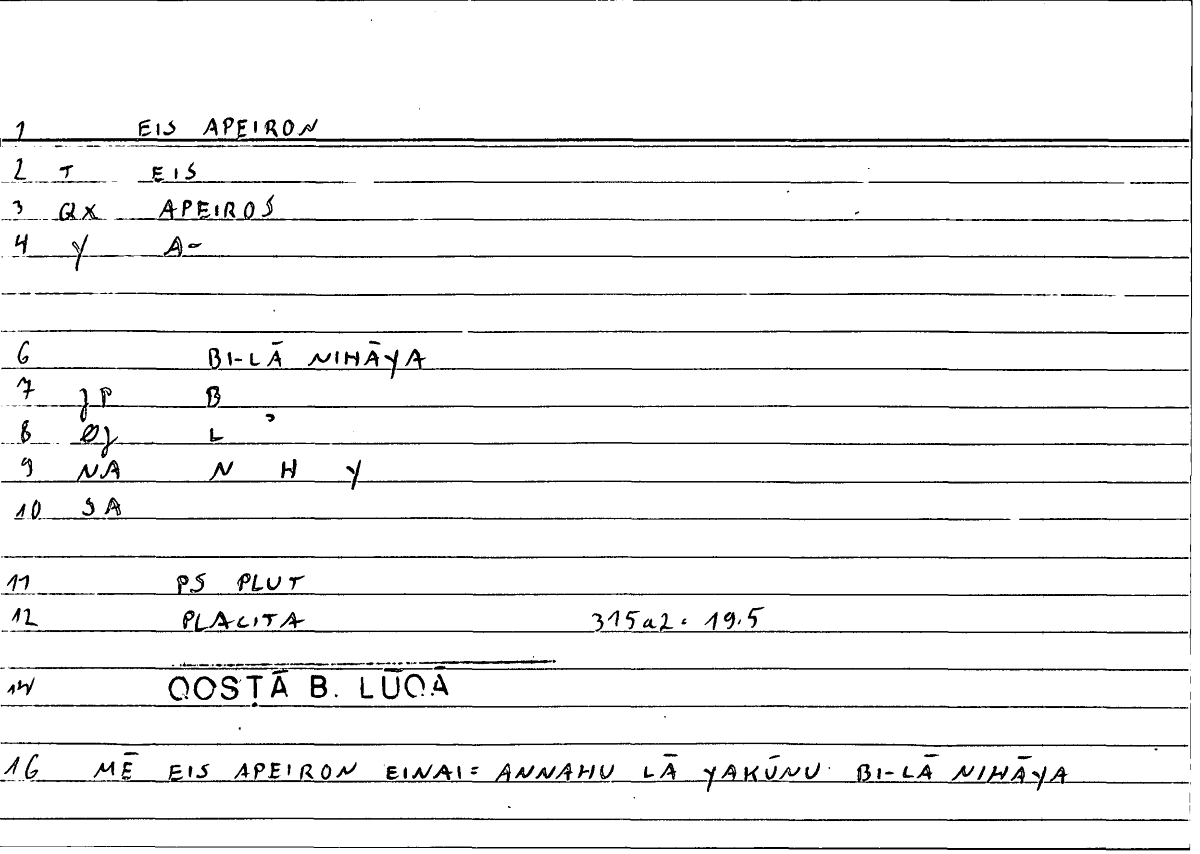 1 EIS APEIRON
2 T EIS
3 QX APEIROS
4 Y A-
6 BI-LĀ NIHĀYA
7 JP B
8 ØJ L ʾ
9 NA N H Y
10 SA
11 PS PLUT
12 PLACITA 315a2 = 19.5
14 QOSṬĀ B. LŪQĀ
16 MĒ EIS APEIRON EINAI = ANNAHU LĀ YAKŪNU BI-LĀ NIHĀYA